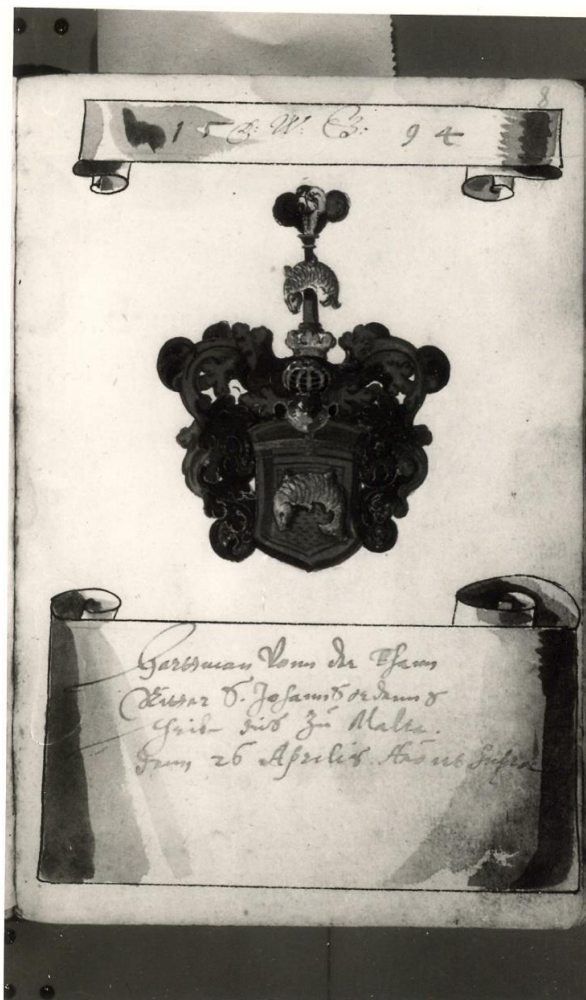 8
15 G: W: G: 94
Hartman Vonn der Thann
Ritter S. Johanns ordenns
schrib dis Zu Malta.
denn 26 Aprilis. Año ut Supra